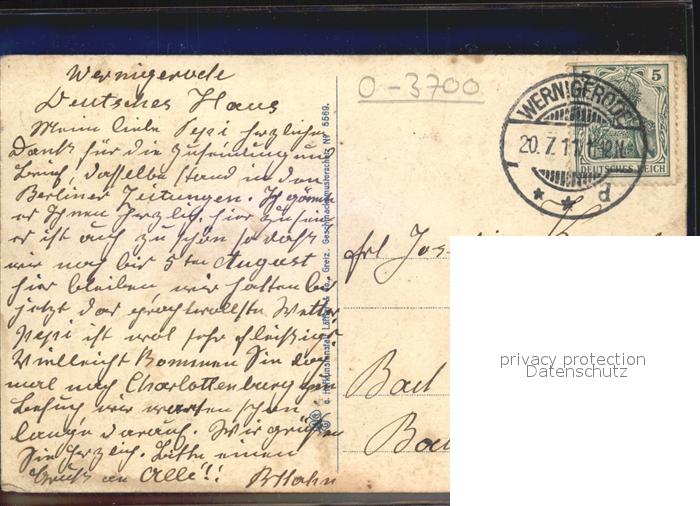 Wernigerode
Deutsches Haus
Meine liebe Pepi herzlichen
Dank für die Zusendung und
Brief, dasselbe stand in den
Berliner Zeitungen. Ich gönne
es Ihnen herzlich, hier zu sein
es ist auch zu schön so daß
wir noch bis 5ten August
hier bleiben wir hatten bis
jetzt das prachtvollste Wetter
Pepi ist wol sehr fleißig?
Vielleicht kommen Sie doch
mal nach Charlottenburg zum
Besuch wir warten schon
lange darauf. Wir grüßen
Sie herzlich. Bitte einen
Gruß an Alle!!
O-3700
WERNIGERODE
20.7.11
5
DEUTSCHES REICH
Geschmacksmusterschutz Nº 5569.
Frl Jos
Bad
privacy protection
Datenschutz